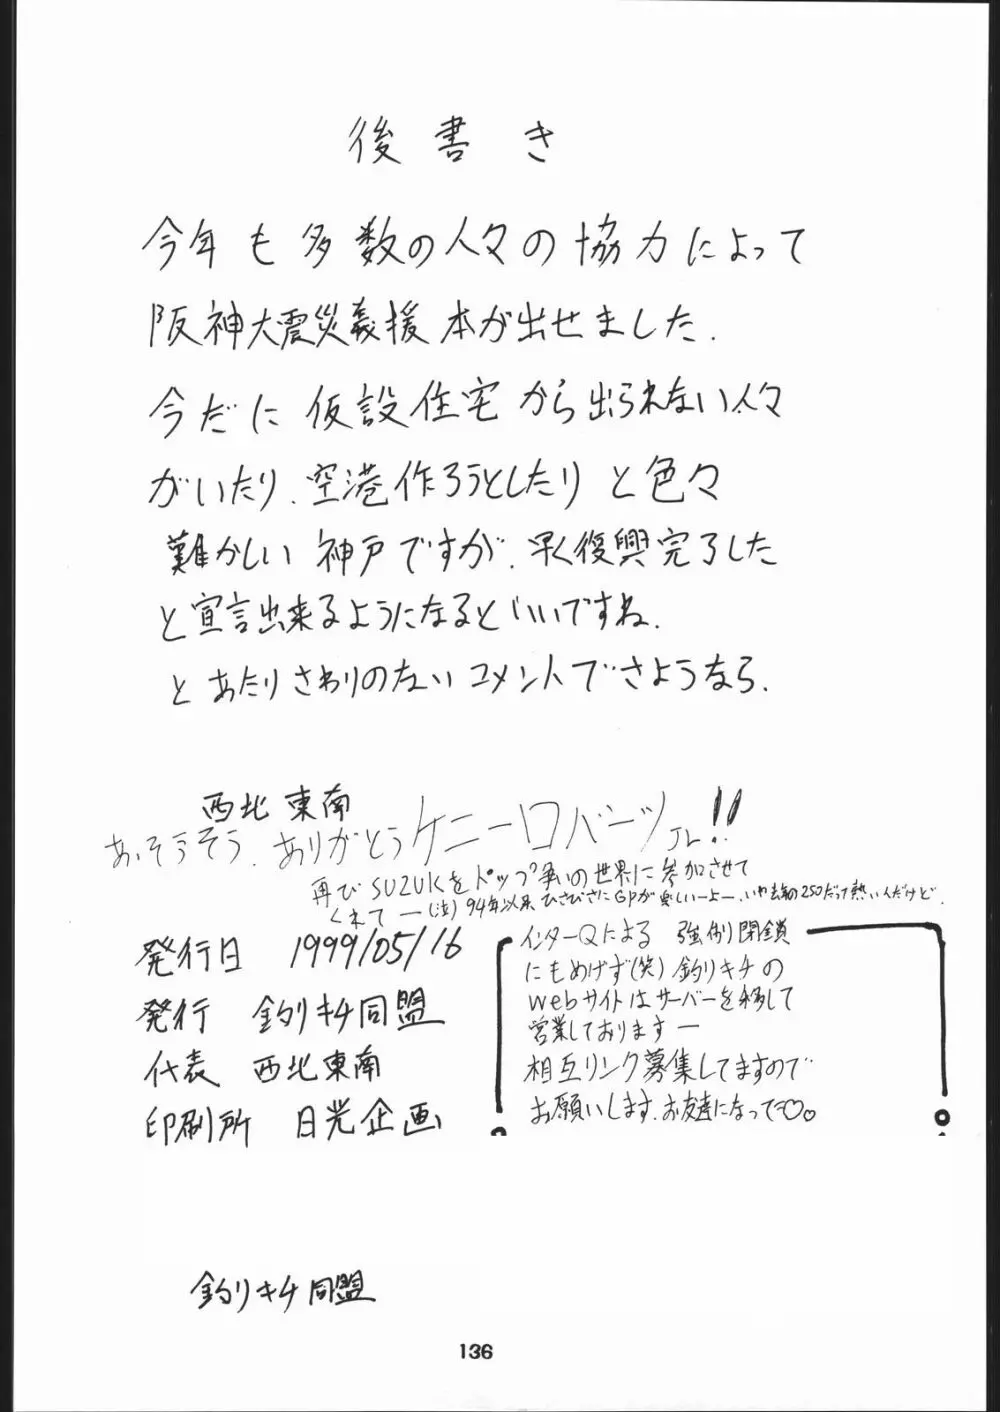 後書き
今年も多数の人々の協力によって
阪神大震災義援本が出せました.
今だに仮設住宅から出られない人々
がいたり.空港作ろうとしたりと色々
難かしい神戸ですが.早く復興完了した
と宣言出来るようになるといいですね.
とあたりさわりのないコメントでさようなら.
西北東南
あ.そうそう.ありがとうケニーロバーツJr!!
再びSUZUKIをトップ争いの世界に参加させて
くれてー(泣)94年以来ひさびさにGPが楽しいーよー.いや去年の250だって熱いんだけど.
発行日 1999/05/16
発行 釣りキチ同盟
代表 西北東南
印刷所 日光企画
インターQによる 強制閉鎖
にもめげず(笑)釣りキチの
webサイトはサーバーを移して
営業しておりますー
相互リンク募集してますので
お願いします.お友達になって♡♡
釣りキチ同盟
136